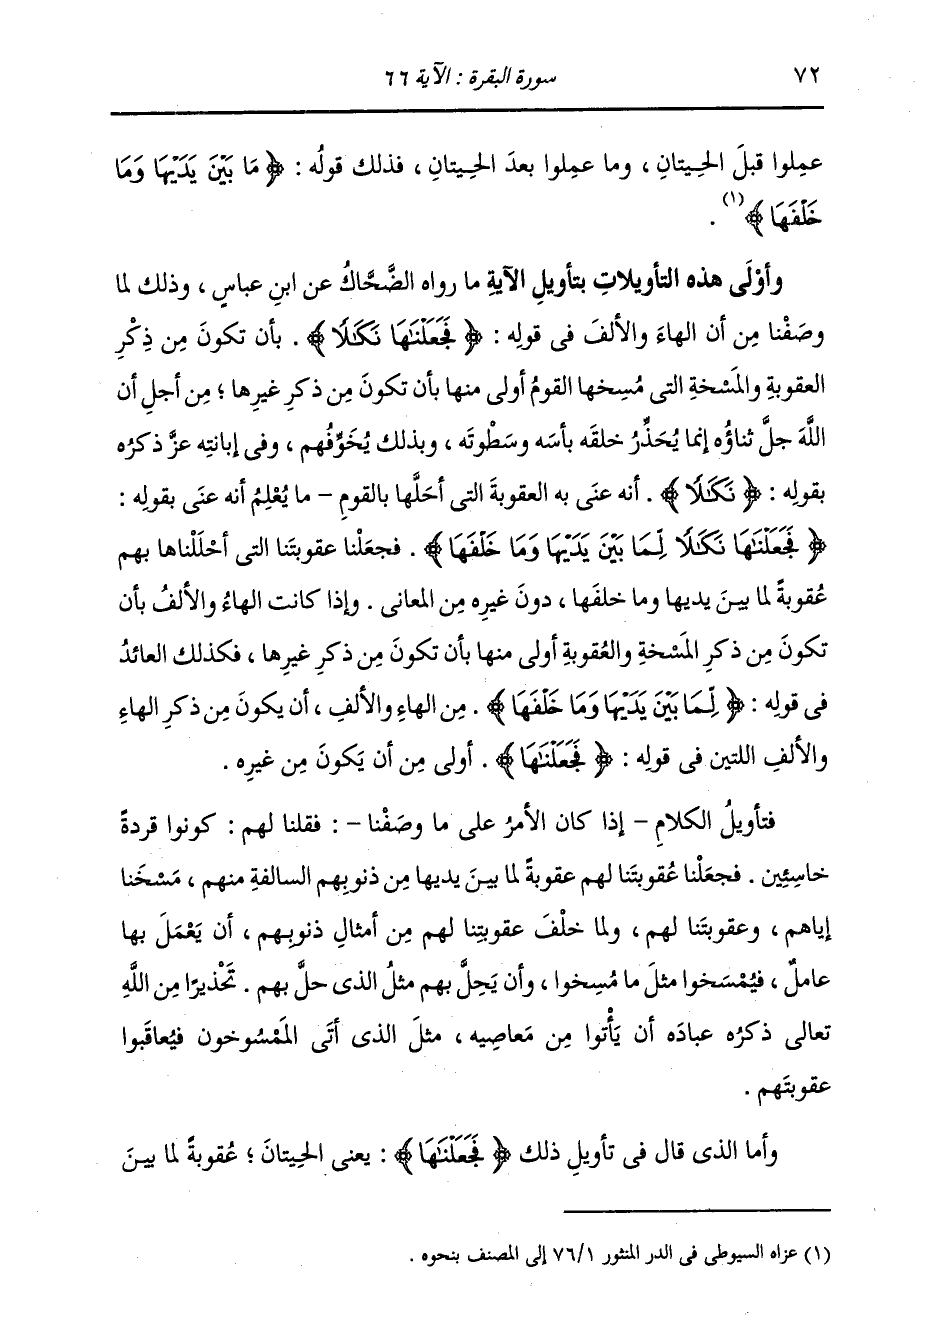 ٧٢
سورة البقرة : الآية ٦٦
عمِلوا قبلَ الحِيتانِ ، وما عمِلوا بعدَ الحِيتانِ ، فذلك قولُه : ﴿ مَا بَيْنَ يَدَيْهَا وَمَا
خَلْفَهَا ﴾(١) .
وأوْلَى هذه التأويلاتِ بتأويلِ الآيةِ ما رواه الضَّحَّاكُ عن ابنِ عباسٍ ، وذلك لما
وصَفْنا مِن أن الهاءَ والألفَ فى قولِه : ﴿ فَجَعَلْنَٰهَا نَكَٰلًا ﴾ . بأن تكونَ مِن ذِكْرِ
العقوبةِ والمَسْخةِ التى مُسِخها القومُ أولى منها بأن تكونَ مِن ذكرِ غيرِها ؛ مِن أجلِ أن
اللَّهَ جلَّ ثناؤُه إنما يُحَذِّرُ خلقَه بأسَه وسَطْوتَه ، وبذلك يُخَوِّفُهم ، وفى إبانتِه عزَّ ذكرُه
بقولِه : ﴿ نَكَٰلًا ﴾ . أنه عنَى به العقوبةَ التى أحَلَّها بالقومِ – ما يُعْلِمُ أنه عنَى بقولِه :
﴿ فَجَعَلْنَٰهَا نَكَٰلًا لِّمَا بَيْنَ يَدَيْهَا وَمَا خَلْفَهَا ﴾ . فجعَلْنا عقوبتَنا التى أحْلَلْناها بهم
عُقوبةً لما بينَ يديها وما خلفَها ، دونَ غيرِه مِن المعانى . وإذا كانت الهاءُ والألفُ بأن
تكونَ مِن ذكرِ المَسْخةِ والعُقوبةِ أولى منها بأن تكونَ مِن ذكرِ غيرِها ، فكذلك العائدُ
فى قولِه : ﴿ لِّمَا بَيْنَ يَدَيْهَا وَمَا خَلْفَهَا ﴾ . مِن الهاءِ والألفِ ، أن يكونَ مِن ذكرِ الهاءِ
والألفِ اللتين فى قولِه : ﴿ فَجَعَلْنَٰهَا ﴾ . أولى مِن أن يَكونَ مِن غيرِه .
فتأويلُ الكلامِ – إذا كان الأمرُ على ما وصَفْنا – : فقلنا لهم : كونوا قردةً
خاسِئِين . فجعَلْنا عُقوبتَنا لهم عقوبةً لما بينَ يديها مِن ذنوبِهم السالفةِ منهم ، مَسْخَنا
إياهم ، وعقوبتَنا لهم ، ولما خلْفَ عقوبتِنا لهم مِن أمثالِ ذنوبِهم ، أن يَعْمَلَ بها
عاملٌ ، فيُمْسَخوا مثلَ ما مُسِخوا ، وأن يَحِلَّ بهم مثلُ الذى حلَّ بهم . تَحْذيرًا مِن اللَّهِ
تعالى ذكرُه عبادَه أن يَأْتوا مِن مَعاصِيه ، مثلَ الذى أتَى المَمْسُوخون فيُعاقَبوا
عقوبتَهم .
وأما الذى قال فى تأويلِ ذلك ﴿ فَجَعَلْنَٰهَا ﴾ : يعنى الحِيتانَ ؛ عُقوبةً لما بينَ
(١) عزاه السيوطى فى الدر المنثور ٧٦/١ إلى المصنف بنحوه .